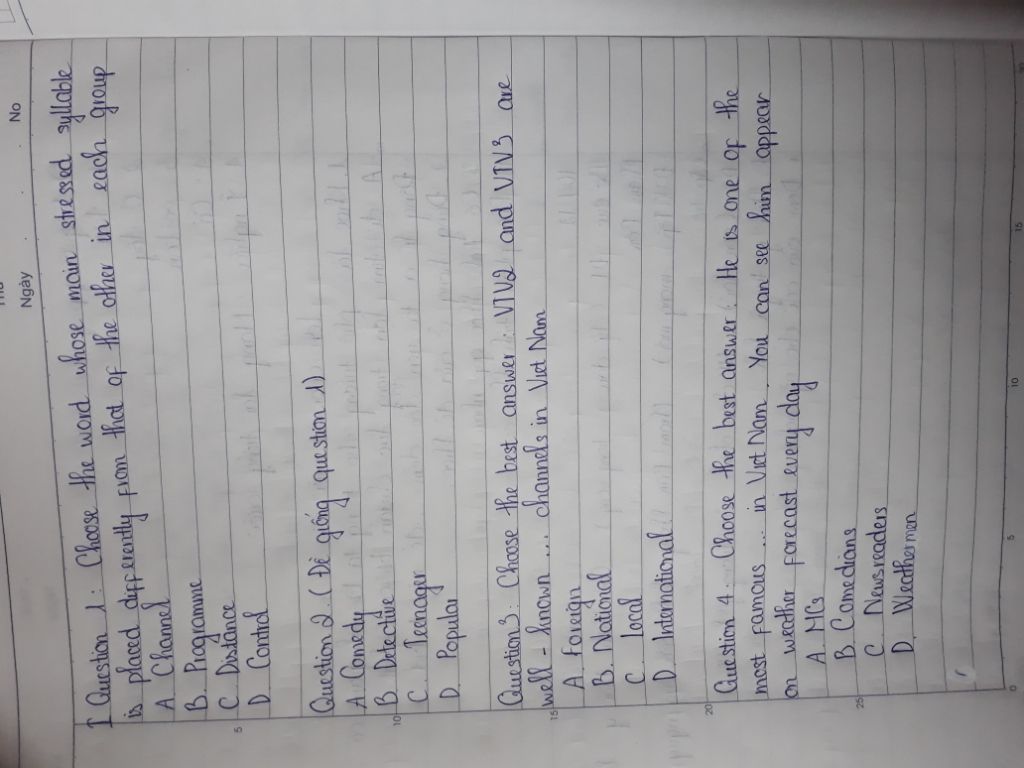 Ngày No
I Question 1 : Choose the word whose main stressed syllable
is placed differently from that of the other in each group
A. Channel
B. Programme
C. Distance
D. Control
Question 2. (Đề giống question 1)
A. Comedy
B. Detective
C. Teenager
D. Popular
Question 3 : Choose the best answer : VTV2 and VTV3 are
well - known .... channels in Viet Nam
A. Foreign
B. National
C. Local
D. International
Question 4 : Choose the best answer : He is one of the
most famous ... in Viet Nam . You can see him appear
on weather forecast every day
A. MCs
B. Comedians
C. Newsreaders
D. Weathermen
5
10
15
20
25
0 5 10 15